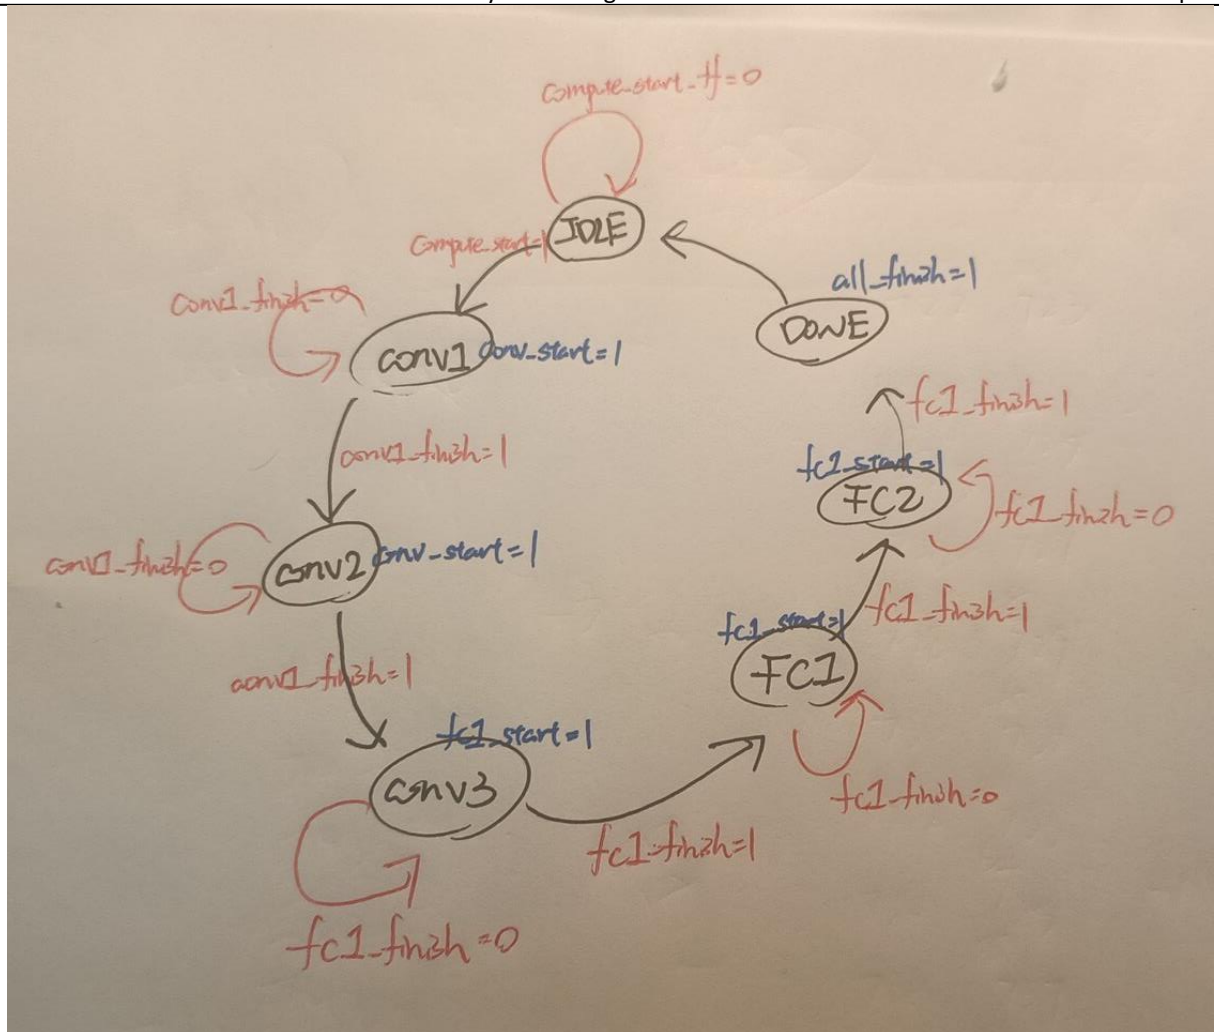 compute_start_ff=0
IDLE
compute_start=1
all_finish=1
conv1_finish=0
DONE
conv1
conv_start=1
fc1_finish=1
conv1_finish=1
fc1_start=1
FC2
fc1_finish=0
conv1_finish=0
conv2
conv_start=1
fc1_finish=1
fc1_start=1
FC1
conv1_finish=1
fc1_start=1
conv3
fc1_finish=0
fc1_finish=1
fc1_finish=0